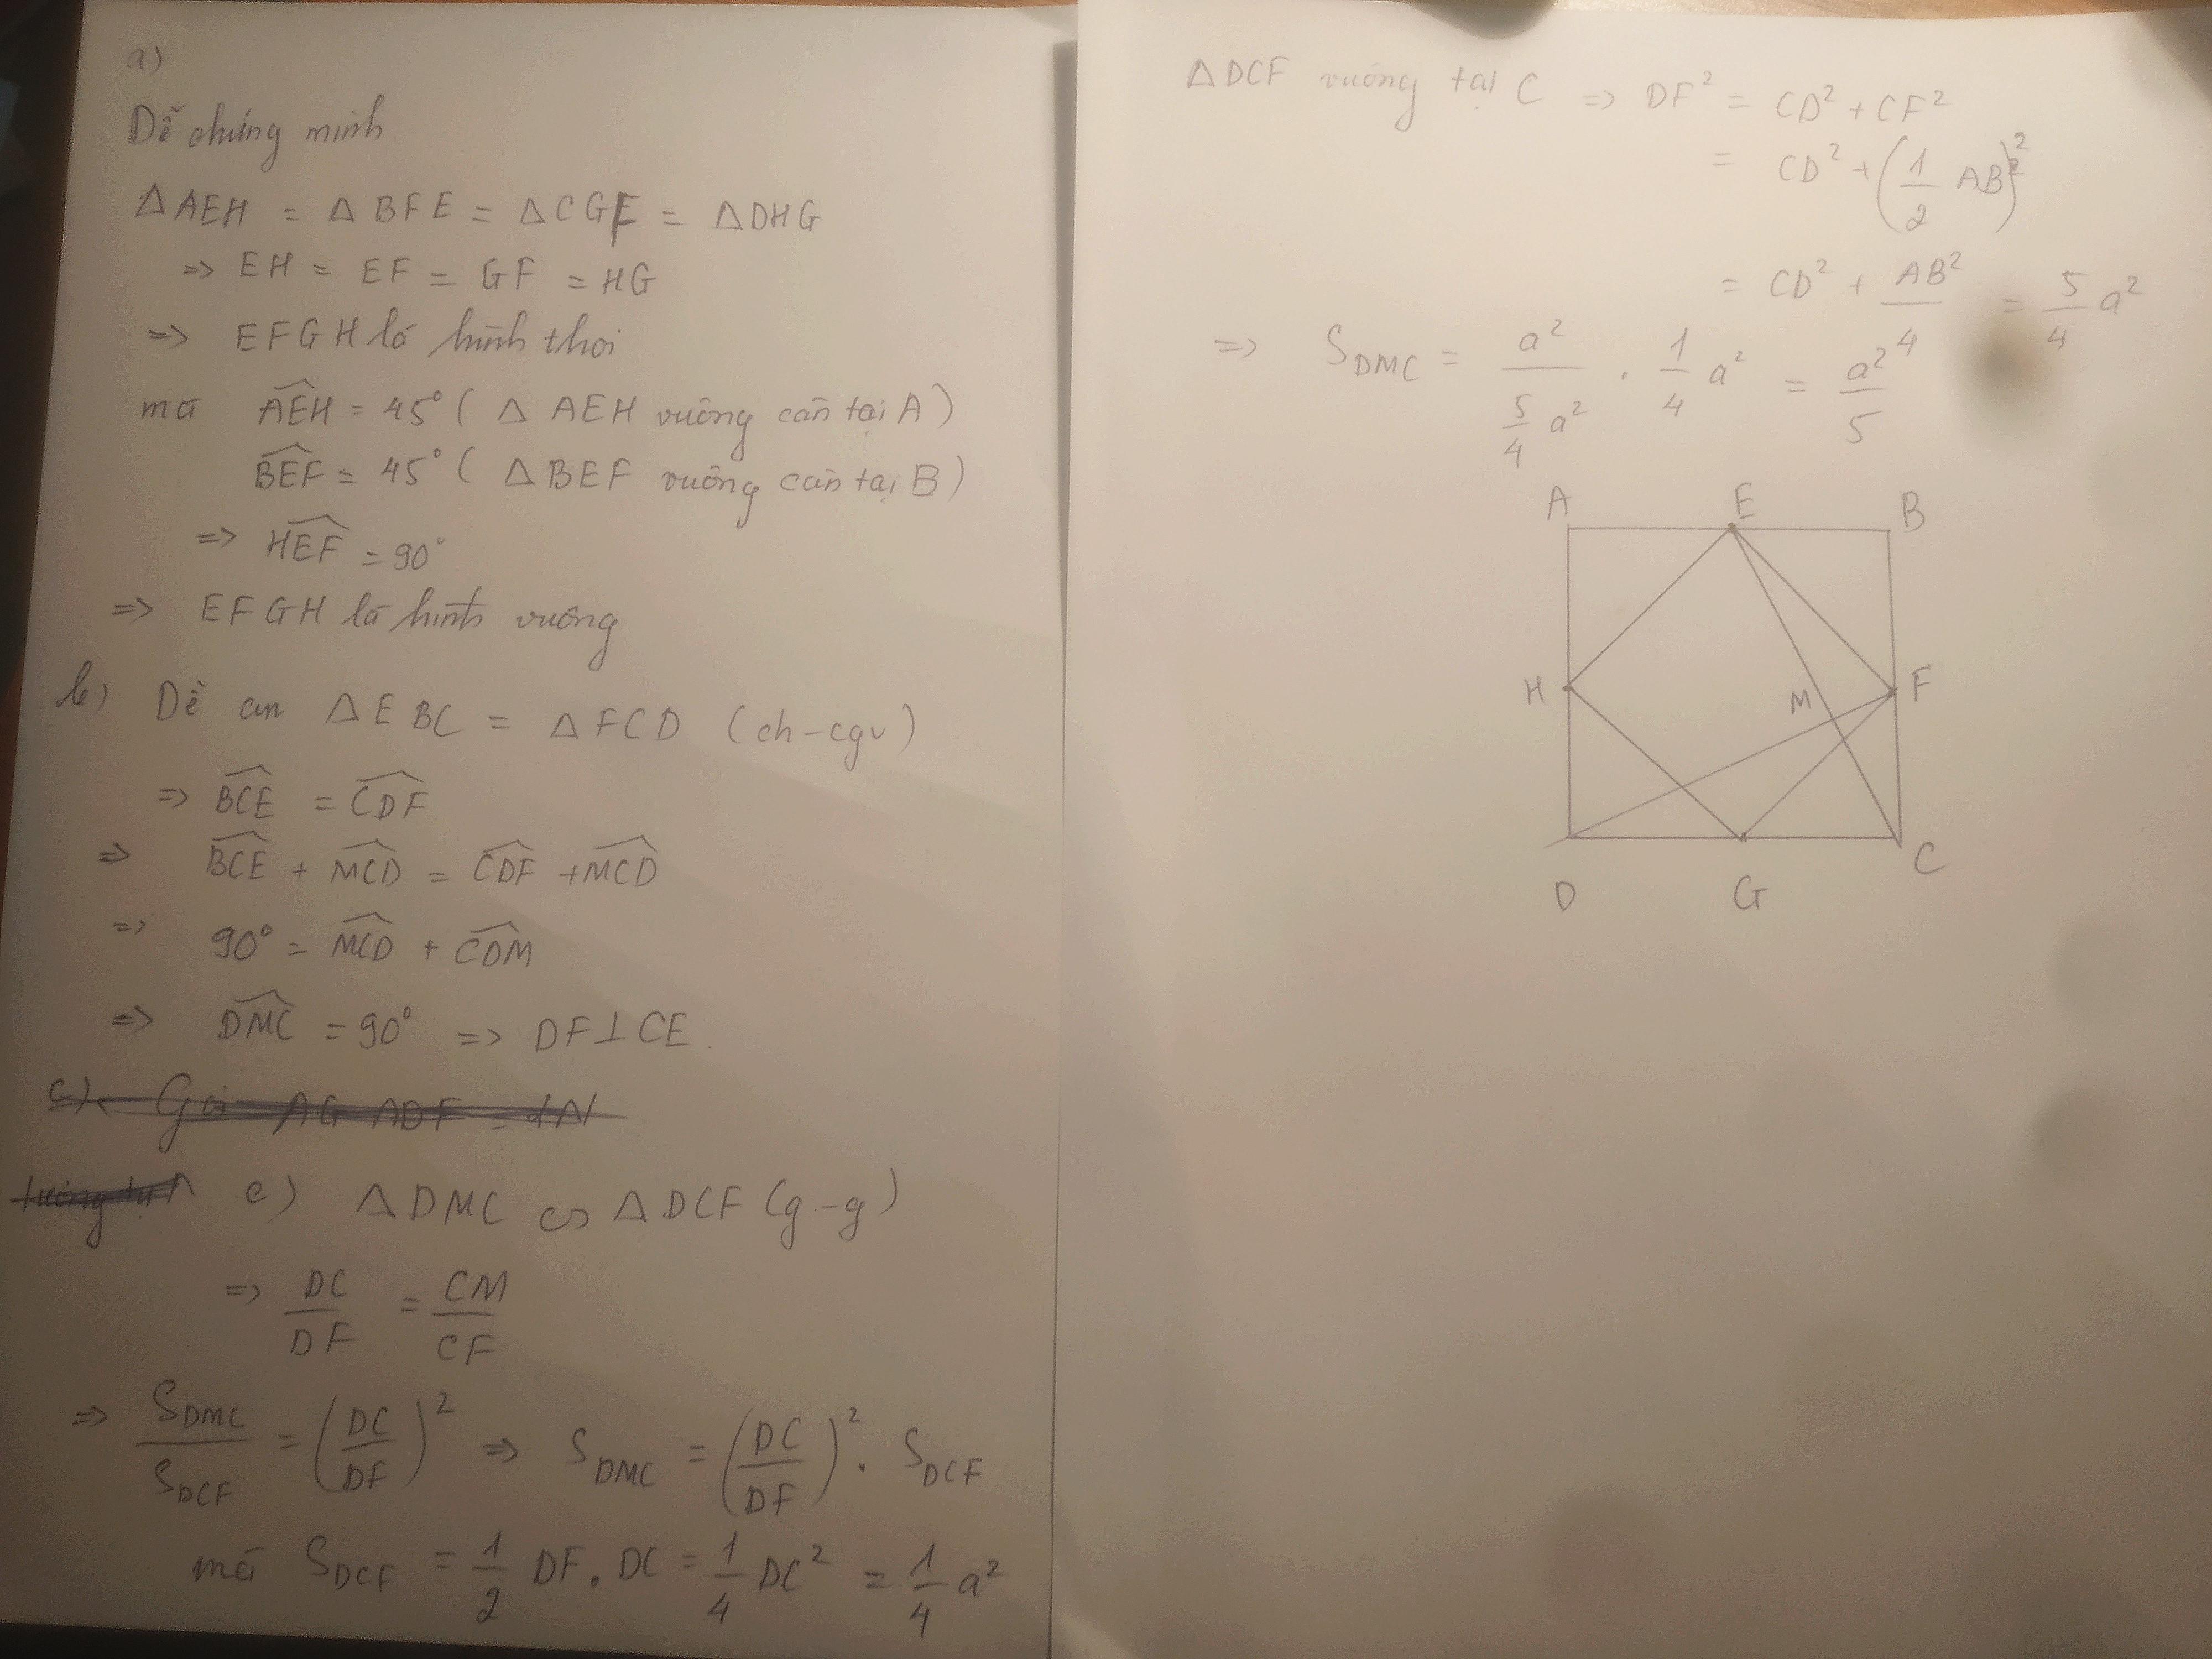 a)
Dễ chứng minh
Δ AEH = Δ BFE = Δ CGF = Δ DHG
=> EH = EF = GF = HG
=> EFGH là hình thoi
mà AEH = 45° ( Δ AEH vuông cân tại A )
BEF = 45° ( Δ BEF vuông cân tại B )
=> HEF = 90°
=> EFGH là hình vuông
b) Dề cm Δ EBC = Δ FCD (ch-cgv)
=> BCE = CDF
=> BCE + MCD = CDF + MCD
=> 90° = MCD + CDM
=> DMC = 90° => DF ⊥ CE.
c) Gọi AG ∩ DF = {N
tương tự c) Δ DMC ∽ Δ DCF (g-g)
=> DC/DF = CM/CF
=> S_DMC/S_DCF = (DC/DF)² => S_DMC = (DC/DF)² . S_DCF
mà S_DCF = 1/2 DF . DC = 1/4 DC² = 1/4 a²
Δ DCF vuông tại C => DF² = CD² + CF²
= CD² + (1/2 AB)²
= CD² + AB²/4 = 5/4 a²
=> S_DMC = a²/(5/4 a²) . 1/4 a² = a²/5
A E B
H M F
D G C